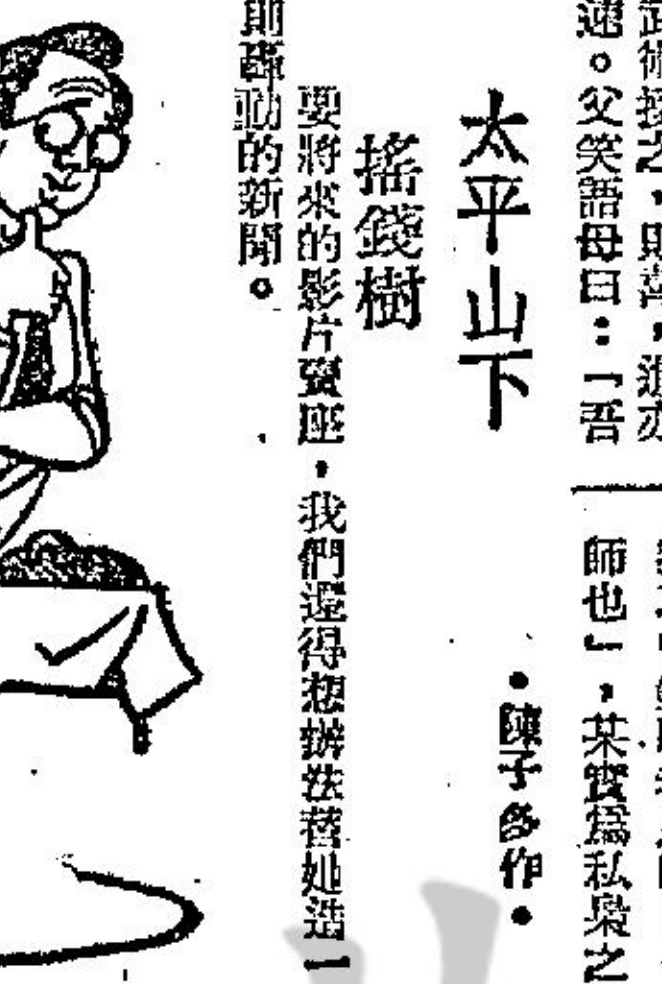 速。父笑語母曰：「吾
師也」，某實爲私梟之
太平山下
•陳子多作•
搖錢樹
要將來的影片賣座，我們還得想辦法替她造一
則轟動的新聞。